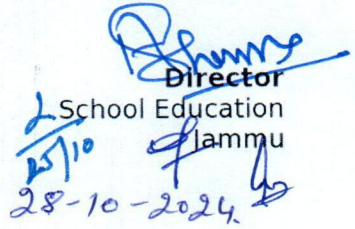 Director
School Education
Jammu
25/10
28-10-2024.